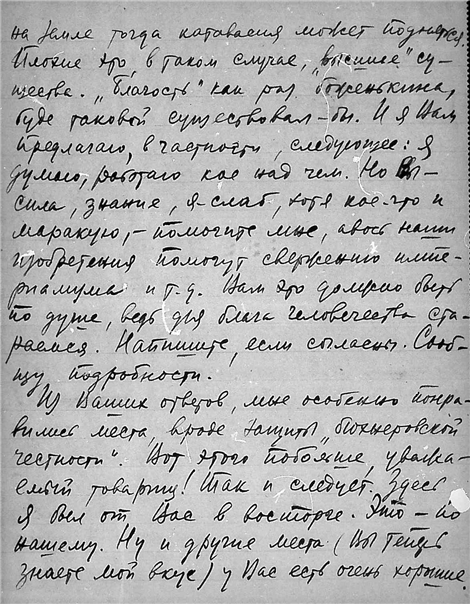 на Земле тогда катавасия может подняться.
Плохие это, в таком случае, „высшие" су-
щества. „Благость" как раз боженькина,
буде таковой существовал-бы. И я Вам
предлагаю, в частности, следующее: я
думаю, работаю кое над чем. Но Вы-
сила, знание, я-слаб, хотя кое-что и
маракую, - помогите мне, авось наши
изобретения помогут свержению импе-
риализма и т.д. Вам это должно быть
по душе, ведь для блага человечества ста-
раемся. Напишите, если согласны. Сооб-
щу подробности.
Из Ваших ответов, мне особенно понра-
вились места, вроде защиты „бюхнеровской
честности". Вот этого побольше, уважа-
емый товарищ! Так и следует. Здесь
я был от Вас в восторге. Это - по
нашему. Ну и другие места (Вы теперь
знаете мой вкус) у Вас есть очень хорошие.